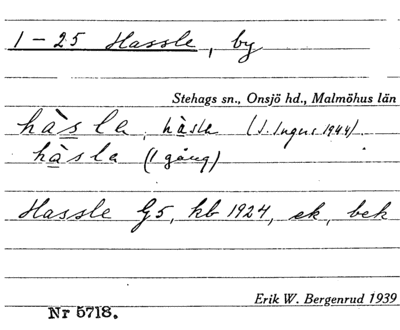 1 - 25 Hassle, by
Stehags sn., Onsjö hd., Malmöhus län
hàsla, hàsla (J. Ingers 1944)
hàsla (1 gång)
Hassle G5, kb 1924, ek, bek
Erik W. Bergenrud 1939
Nr 5718.